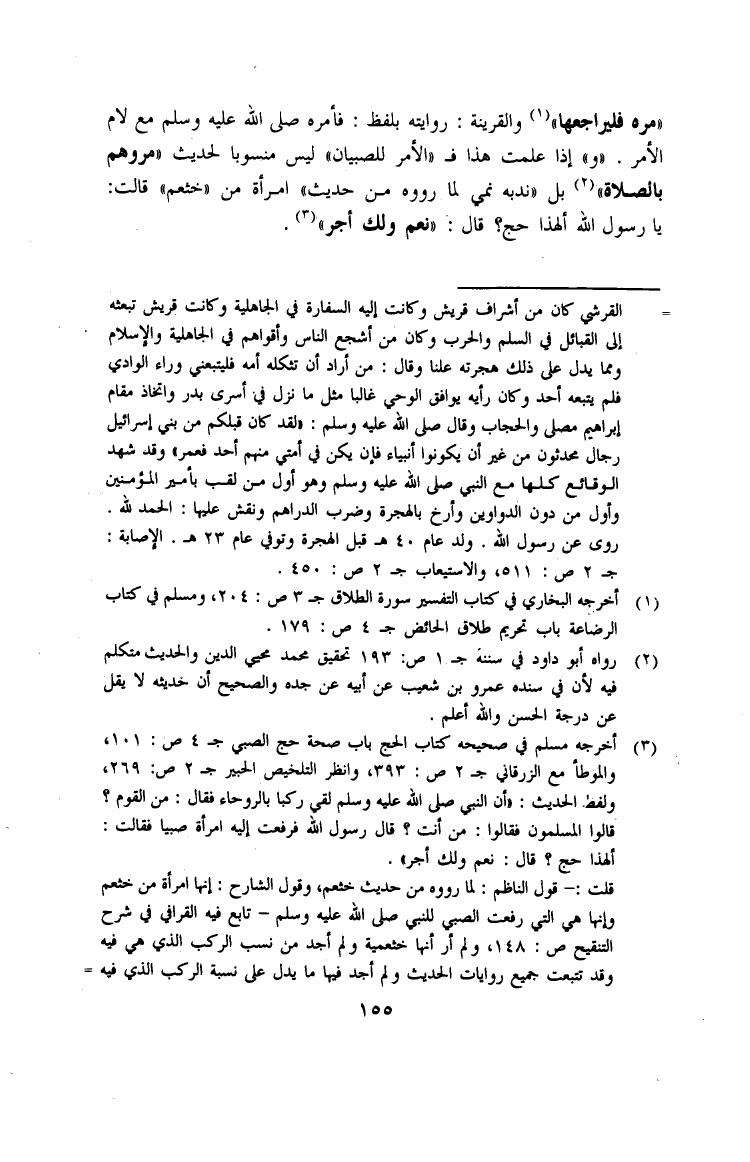 «مره فليراجعها»(١) والقرينة : روايته بلفظ : فأمره صلى الله عليه وسلم مع لام
الأمر . «و» إذا علمت هذا فـ «الأمر للصبيان» ليس منسوبا لحديث «مروهم
بالصلاة»(٢) بل «ندبه نمي لما رووه من حديث» امرأة من «خثعم» قالت:
يا رسول الله ألهذا حج؟ قال : «نعم ولك أجر»(٣) .
= القرشي كان من أشراف قريش وكانت إليه السفارة في الجاهلية وكانت قريش تبعثه
إلى القبائل في السلم والحرب وكان من أشجع الناس وأقواهم في الجاهلية والإسلام
ومما يدل على ذلك هجرته علنا وقال : من أراد أن تثكله أمه فليتبعني وراء الوادي
فلم يتبعه أحد وكان رأيه يوافق الوحي غالبا مثل ما نزل في أسرى بدر واتخاذ مقام
إبراهيم مصلى والحجاب وقال صلى الله عليه وسلم : «لقد كان قبلكم من بني إسرائيل
رجال محدثون من غير أن يكونوا أنبياء فإن يكن في أمتي منهم أحد فعمر» وقد شهد
الوقائع كلها مع النبي صلى الله عليه وسلم وهو أول من لقب بأمير المؤمنين
وأول من دون الدواوين وأرخ بالهجرة وضرب الدراهم ونقش عليها : الحمد لله .
روى عن رسول الله . ولد عام ٤٠ هـ قبل الهجرة وتوفي عام ٢٣ هـ . الإصابة :
جـ ٢ ص : ٥١١، والاستيعاب جـ ٢ ص : ٤٥٠ .
(١) أخرجه البخاري في كتاب التفسير سورة الطلاق جـ ٣ ص : ٢٠٤، ومسلم في كتاب
الرضاعة باب تحريم طلاق الحائض جـ ٤ ص : ١٧٩ .
(٢) رواه أبو داود في سننه جـ ١ ص: ١٩٣ تحقيق محمد محيي الدين والحديث متكلم
فيه لأن في سنده عمرو بن شعيب عن أبيه عن جده والصحيح أن حديثه لا يقل
عن درجة الحسن والله أعلم .
(٣) أخرجه مسلم في صحيحه كتاب الحج باب صحة حج الصبي جـ ٤ ص : ١٠١،
والموطأ مع الزرقاني جـ ٢ ص : ٣٩٣، وانظر التلخيص الحبير جـ ٢ ص: ٢٦٩،
ولفظ الحديث : «أن النبي صلى الله عليه وسلم لقي ركبا بالروحاء فقال : من القوم ؟
قالوا المسلمون فقالوا : من أنت ؟ قال رسول الله فرفعت إليه امرأة صبيا فقالت :
ألهذا حج ؟ قال : نعم ولك أجر» .
قلت :– قول الناظم : لما رووه من حديث خثعم، وقول الشارح : إنها امرأة من خثعم
وإنها هي التي رفعت الصبي للنبي صلى الله عليه وسلم – تابع فيه القرافي في شرح
التنقيح ص : ١٤٨، ولم أر أنها خثعمية ولم أجد من نسب الركب الذي هي فيه
وقد تتبعت جميع روايات الحديث ولم أجد فيها ما يدل على نسبة الركب الذي فيه =
١٥٥